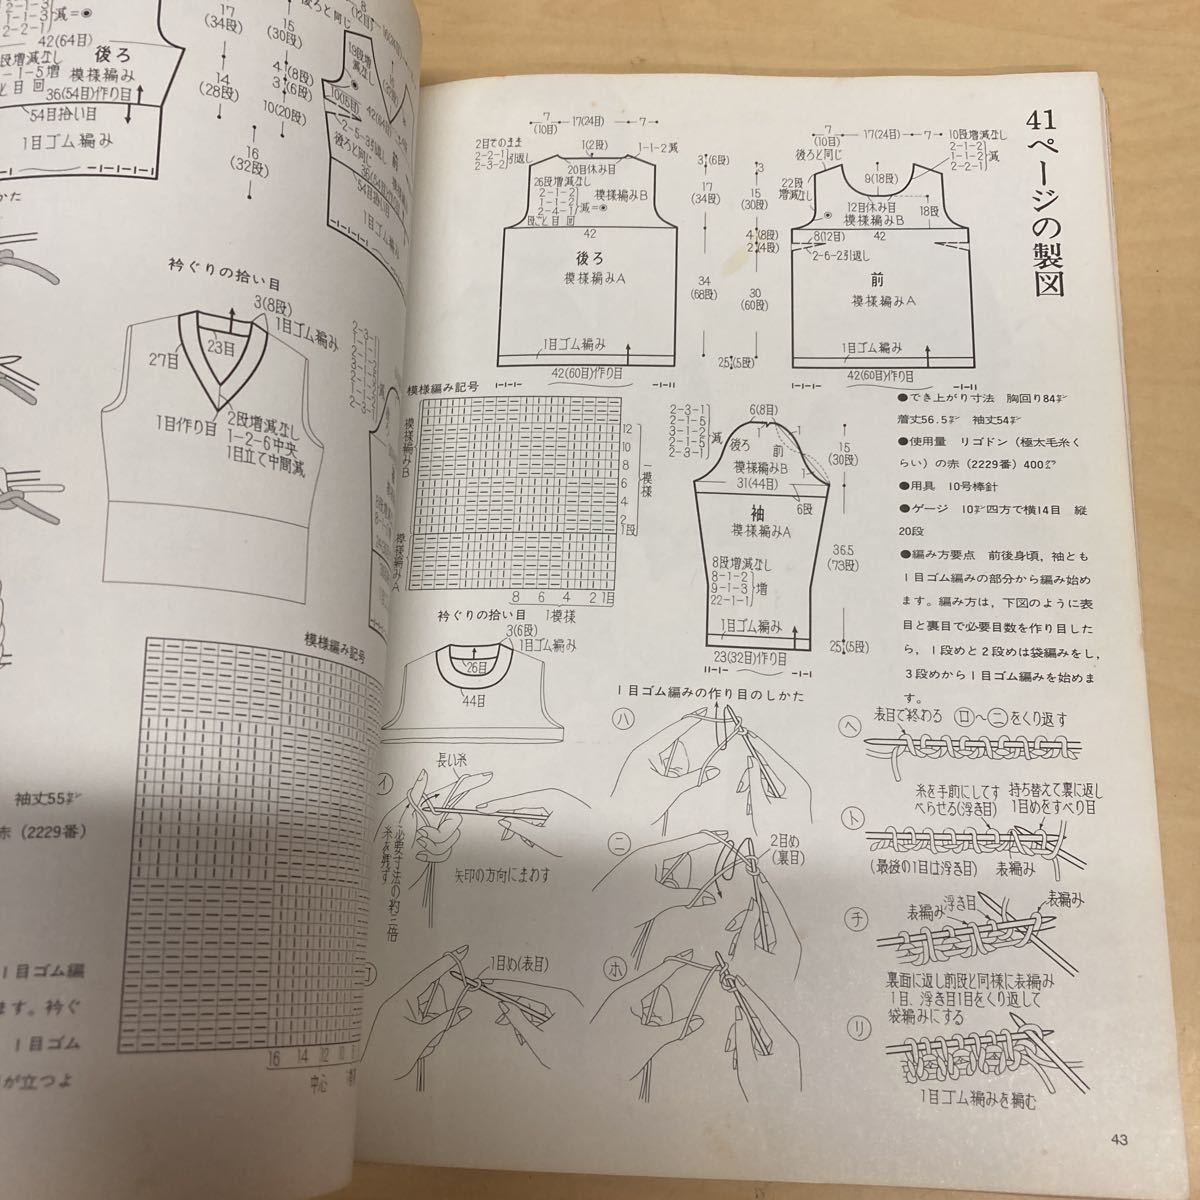 41ページの製図
7
(10目)
17(24目)
7
2目でのまま
2-2-1
2-3-2
引返し
1(2段)
1-1-2減
20目休み目
26段増減なし
2-1-2
1-1-2
2-4-1
段ごと目 回
減=◉
模様編みB
42
後ろ
模様編みA
1目ゴム編み
42(60目)作り目
3(6段)
17
(34段)
34
(68段)
3
15
(30段)
4(8段)
2(4段)
30
(60段)
2.5(5段)
7
(10目)
17(24目)
7
10段増減なし
2-1-2
1-1-2
2-2-1
減
後ろと同じ
22段
増減なし
9(18段)
12目休み目
模様編みB
18段
8(12目)
42
2-6-2引返し
前
模様編みA
1目ゴム編み
42(60目)作り目
模様編み記号
模様編みB
模様編みA
12
10
8
6
4
2
1段
一模様
8 6 4 2 1目
1模様
2-3-1
2-1-5
2-3-1
減
6(8目)
後ろ
前
模様編みB
31(44目)
6段
袖
模様編みA
8段増減なし
8-1-2
9-1-3
22-1-1
増
1目ゴム編み
23(32目)作り目
15
(30段)
36.5
(73段)
2.5(5段)
●でき上がり寸法 胸回り84㌢
着丈56.5㌢ 袖丈54㌢
●使用量 リゴドン（極太毛糸く
らい）の赤（2229番）400㌘
●用具 10号棒針
●ゲージ 10㌢四方で横14目 縦
20段
●編み方要点 前後身頃，袖とも
1目ゴム編みの部分から編み始め
ます。編み方は，下図のように表
目と裏目で必要目数を作り目した
ら，1段めと2段めは袋編みをし，
3段めから1目ゴム編みを始めま
す。
衿ぐりの拾い目
3(6段)
1目ゴム編み
26目
44目
1目ゴム編みの作り目のしかた
イ
長い糸
必要寸法の約三倍
糸を残す
矢印の方向にまわす
ロ
1目め(表目)
ハ
ニ
2目め
(裏目)
ホ
ヘ
表目で終わる ㋺〜㋥をくり返す
糸を手前にしてす
べらせる(浮き目)
持ち替えて裏に返し
1目めをすべり目
ト
(最後の1目は浮き目)
表編み
チ
表編み
浮き目
表編み
裏面に返し前段と同様に表編み
1目、浮き目1目をくり返して
袋編みにする
リ
1目ゴム編みを編む
43
42(64目)
後ろ
模様編み
36(54目)作り目
54目拾い目
1目ゴム編み
17
(34段)
14
(28段)
15
(30段)
4(8段)
3(6段)
10(20段)
16
(32段)
後ろと同じ
2-5-3引返し
前
1目ゴム編み
衿ぐりの拾い目
3(8段)
1目ゴム編み
27目
23目
1目作り目
2段増減なし
1-2-6中央
1目立て中間減
模様編み記号
16 14 12 10 8
中心
袖丈55㌢
赤（2229番）
1目ゴム編
ます。衿ぐ
1目ゴム
が立つよ